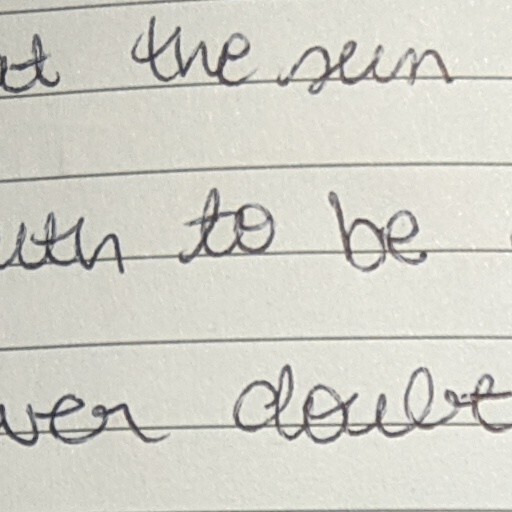 at the sun
uth to be
ver doubt